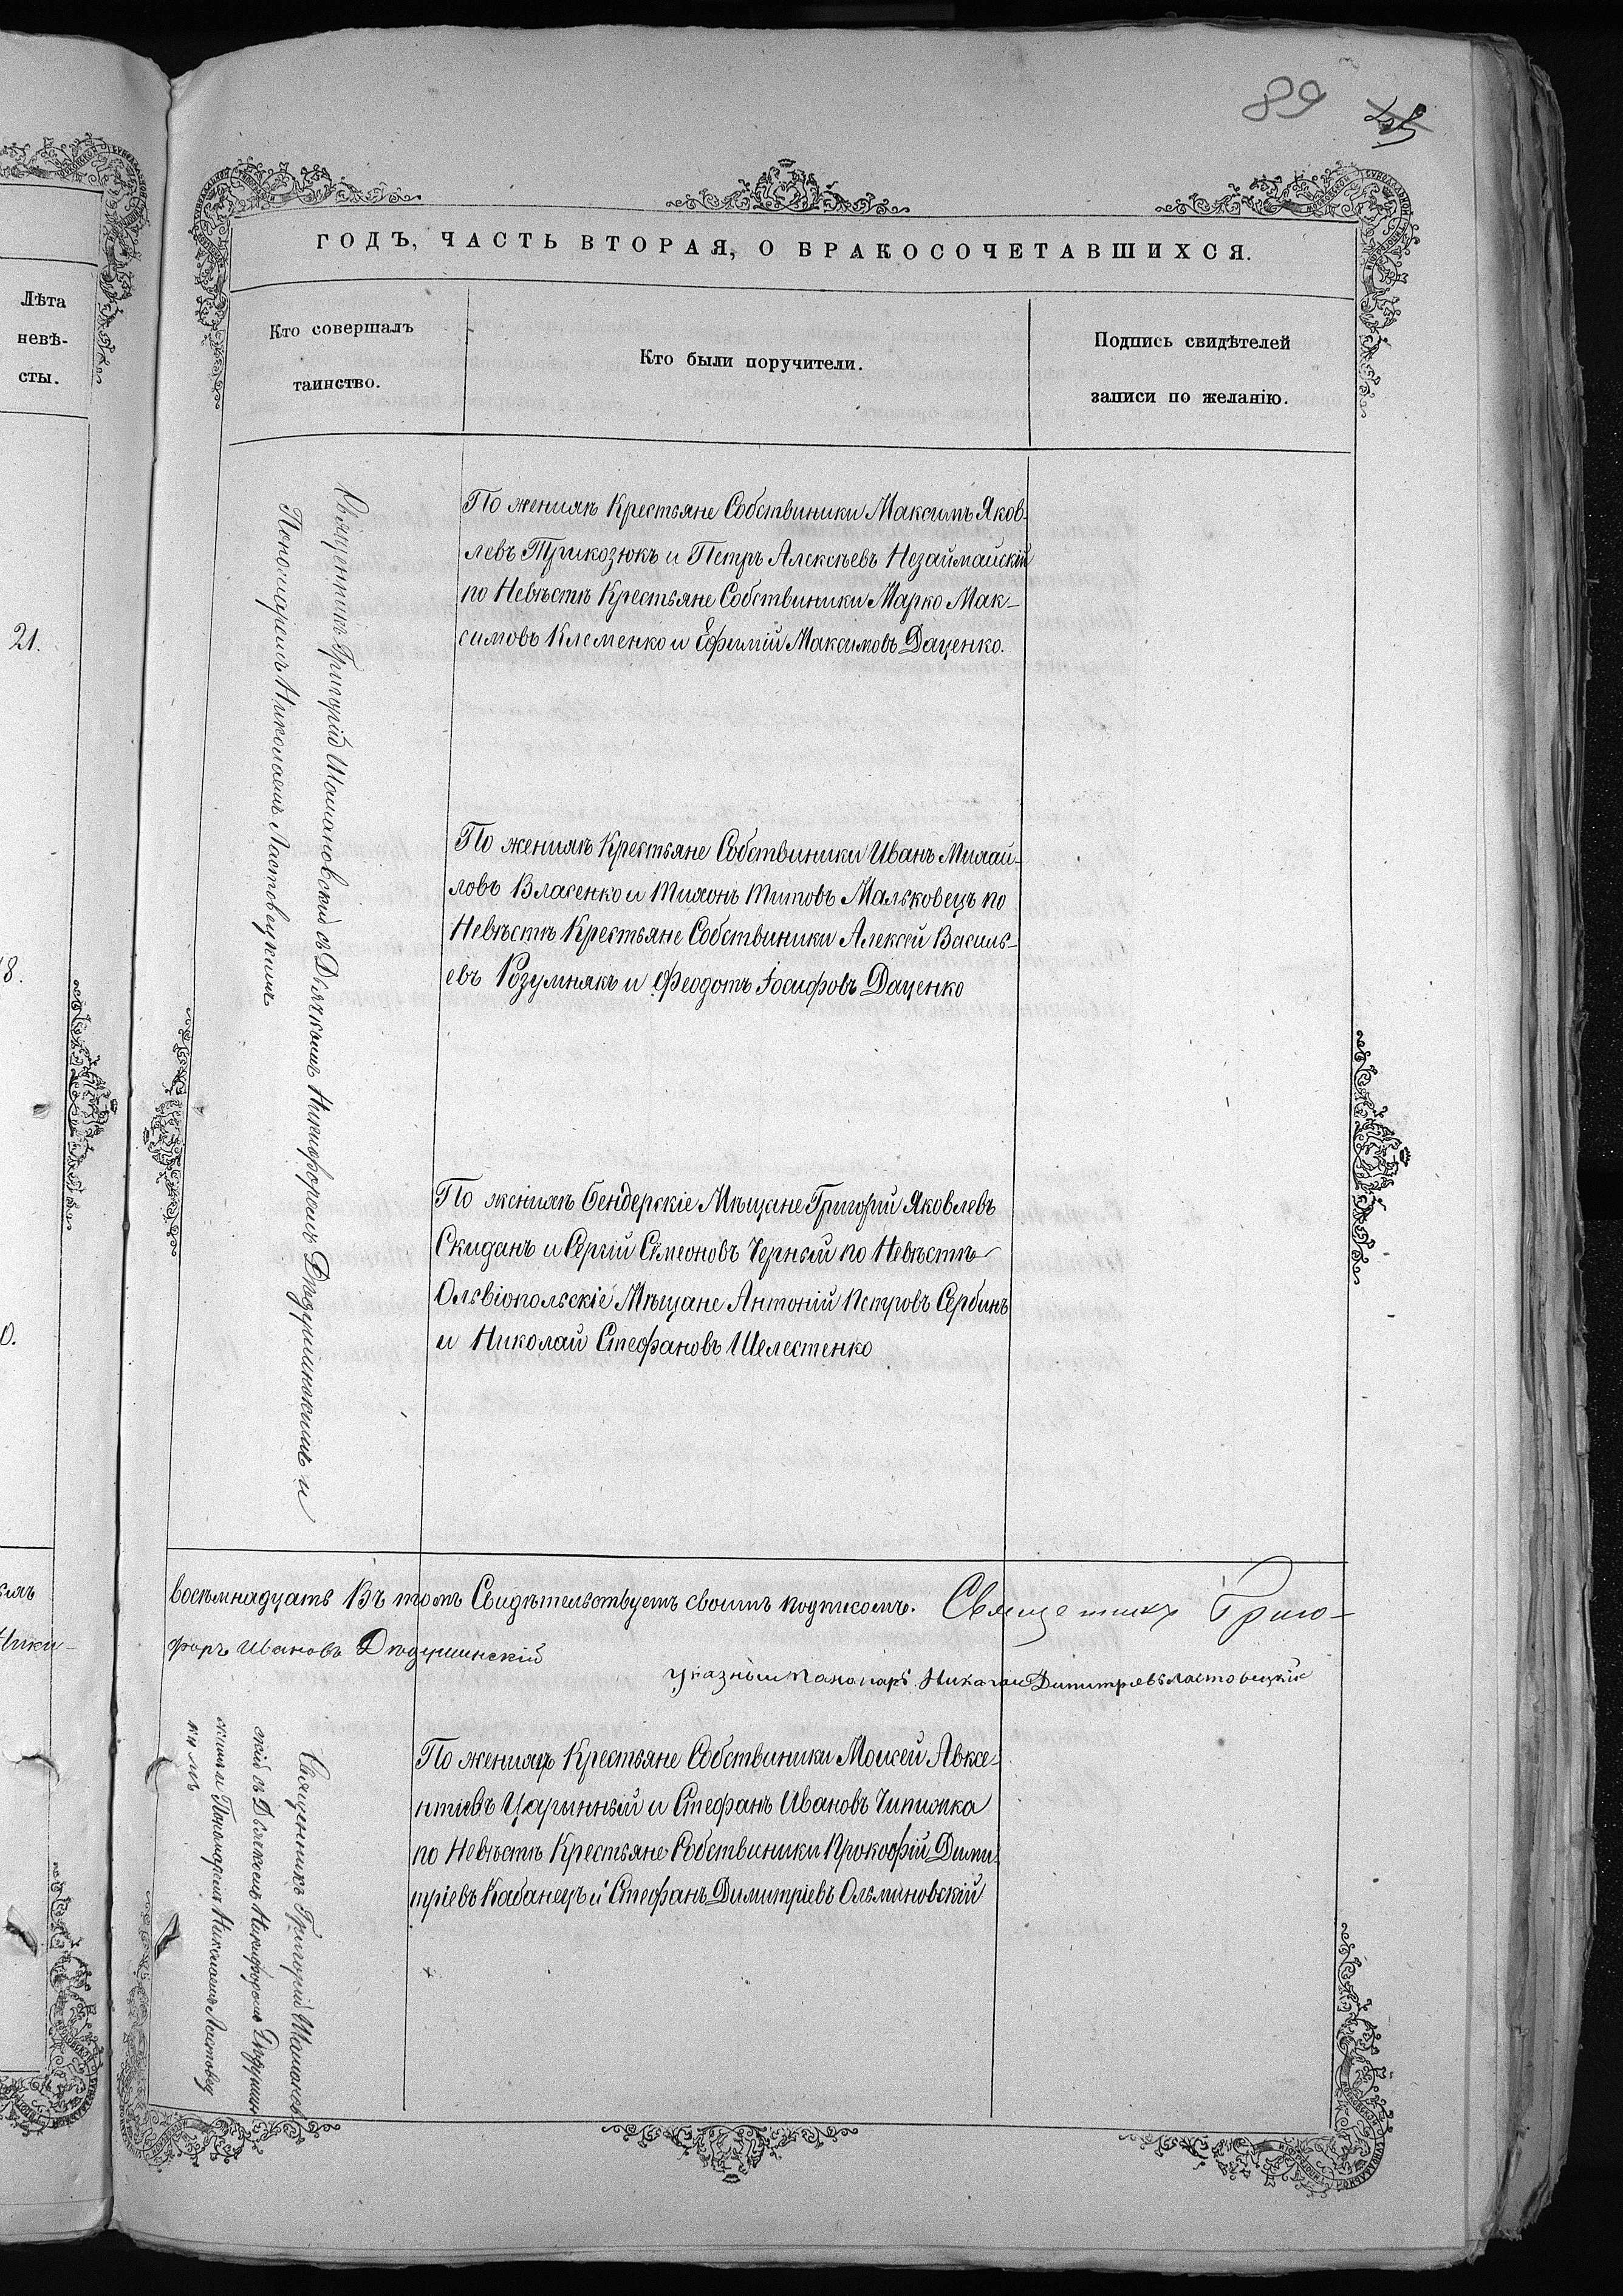 89
ГОДЪ, ЧАСТЬ ВТОРАЯ, О БРАКОСОЧЕТАВШИХСЯ.
Лѣта
невѣ-
сты.
Кто совершалъ
таинство.
Кто были поручители.
Подпись свидѣтелей
записи по желанію.
21.
8.
0.
Священникъ Григорій Шомановскій съ Дьячкомъ Никифоромъ Дмодушинскимъ и
Пономаремъ Николаемъ Ластовецкимъ
По женихѣ Крестьяне Собствиники Максимъ Яков-
левъ Трикозюкъ и Петръ Алексѣевъ Незаймайскій
по Невѣстѣ Крестьяне Собствиники Марко Мак-
симовъ Клеменко и Ефимій Максимовъ Даценко.
По женихѣ Крестьяне Собствиники Иванъ Михаи-
ловъ Власенко и Тихонъ Титовъ Мальковецъ по
Невѣстѣ Крестьяне Собствиники Алексѣй Василь-
евъ Розумнякъ и Феодотъ Іосифовъ Даценко
По женихѣ Бендерскіе Мѣщане Григорій Яковлевъ
Скиданъ и Сергій Симеоновъ Черный по Невѣстѣ
Ольвіопольскіе Мѣщане Антоній Петровъ Сербинъ
и Николай Стефановъ Шелестенко
восемнадцать Въ томъ Свидѣтельствуемъ своимъ подписомъ. Священникъ Григо-
Ники-
форъ Ивановъ
указный Паномарь Николай Димитріевъ Ластовецкій
Священникъ Григорій
скій съ Дьячкомъ Никифоромъ
скимъ и Пономаремъ Николаемъ Ластовец
кимъ
По женихѣ Крестьяне Собствиники Моисей Авксе-
нтіевъ Царинный и Стефанъ Ивановъ Чипижка
по Невѣстѣ Крестьяне Собствиники Прокофій Дими-
тріевъ Кабанецъ и Стефанъ Димитріевъ Ольшиновскій